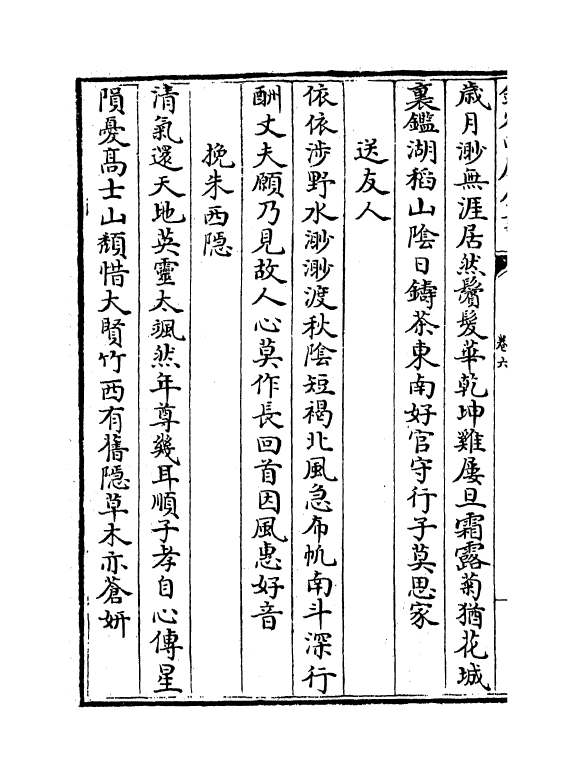 歲月渺無涯居然鬢髮華乾坤雞屢旦霜露菊猶花城
裏鑑湖稻山陰日鑄茶東南好官守行子莫思家
送友人
依依涉野水渺渺渡秋陰短褐北風急布帆南斗深行
酬丈夫願乃見故人心莫作長回首因風惠好音
挽朱西隱
清氣還天地英靈太颯然年尊幾耳順子孝自心傳星
隕憂髙士山頽惜大賢竹西有舊隱草木亦蒼妍
卷六